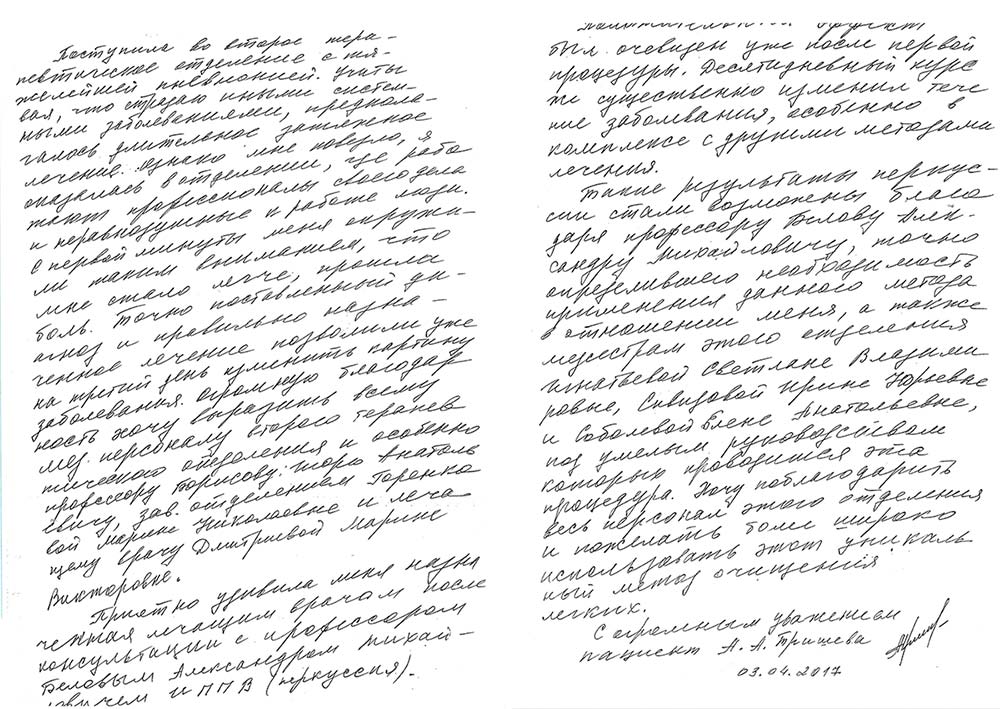 Поступила во второе тера-
певтическое отделение с тя-
желейшей пневмонией. Учиты
вая, что страдаю иными систем-
ными заболеваниями, предпола-
галось длительное затяжное
лечение. Однако мне повезло, я
оказалась в отделении, где рабо
тают профессионалы своего дела
и неравнодушные к работе люди.
С первой минуты меня окружи-
ли таким вниманием, что
мне стало легче, прошла
боль. Точно поставленный ди-
агноз и правильно назна-
ченное лечение позволили уже
на третий день изменить картину
заболевания. Огромную благодар
ность хочу выразить всему
мед. персоналу второго терапев
тического отделения и особенно
профессору Борисову Игорю Анатоль
евичу, зав. отделением Горенко
вой Марине Николаевне и леча
щему врачу Дмитриевой Марине
Викторовне.
Приятно удивила меня назна
ченная лечащим врачом после
консультации с профессором
Беловым Александром Михай-
ловичем ИППВ (перкуссия).
эффект
был очевиден уже после первой
процедуры. Десятидневный курс
же существенно изменил тече
ние заболевания, особенно в
комплексе с другими методами
лечения.
Такие результаты перкус-
сии стали возможны благо
даря профессору Белову Алек-
сандру Михайловичу, точно
определившего необходимость
применения данного метода
в отношении меня, а также
медсестрам этого отделения
Игнатьевой Светлане Владими
ровне, Сивизовой Ирине Юрьевне
и Соболевой Елене Анатольевне,
под умелым руководством
которых проводится эта
процедура. Хочу поблагодарить
весь персонал этого отделения
и пожелать более широко
использовать этот уникаль
ный метод очищения
легких.
С огромным уважением
пациент А. А. Тришева
03.04.2017